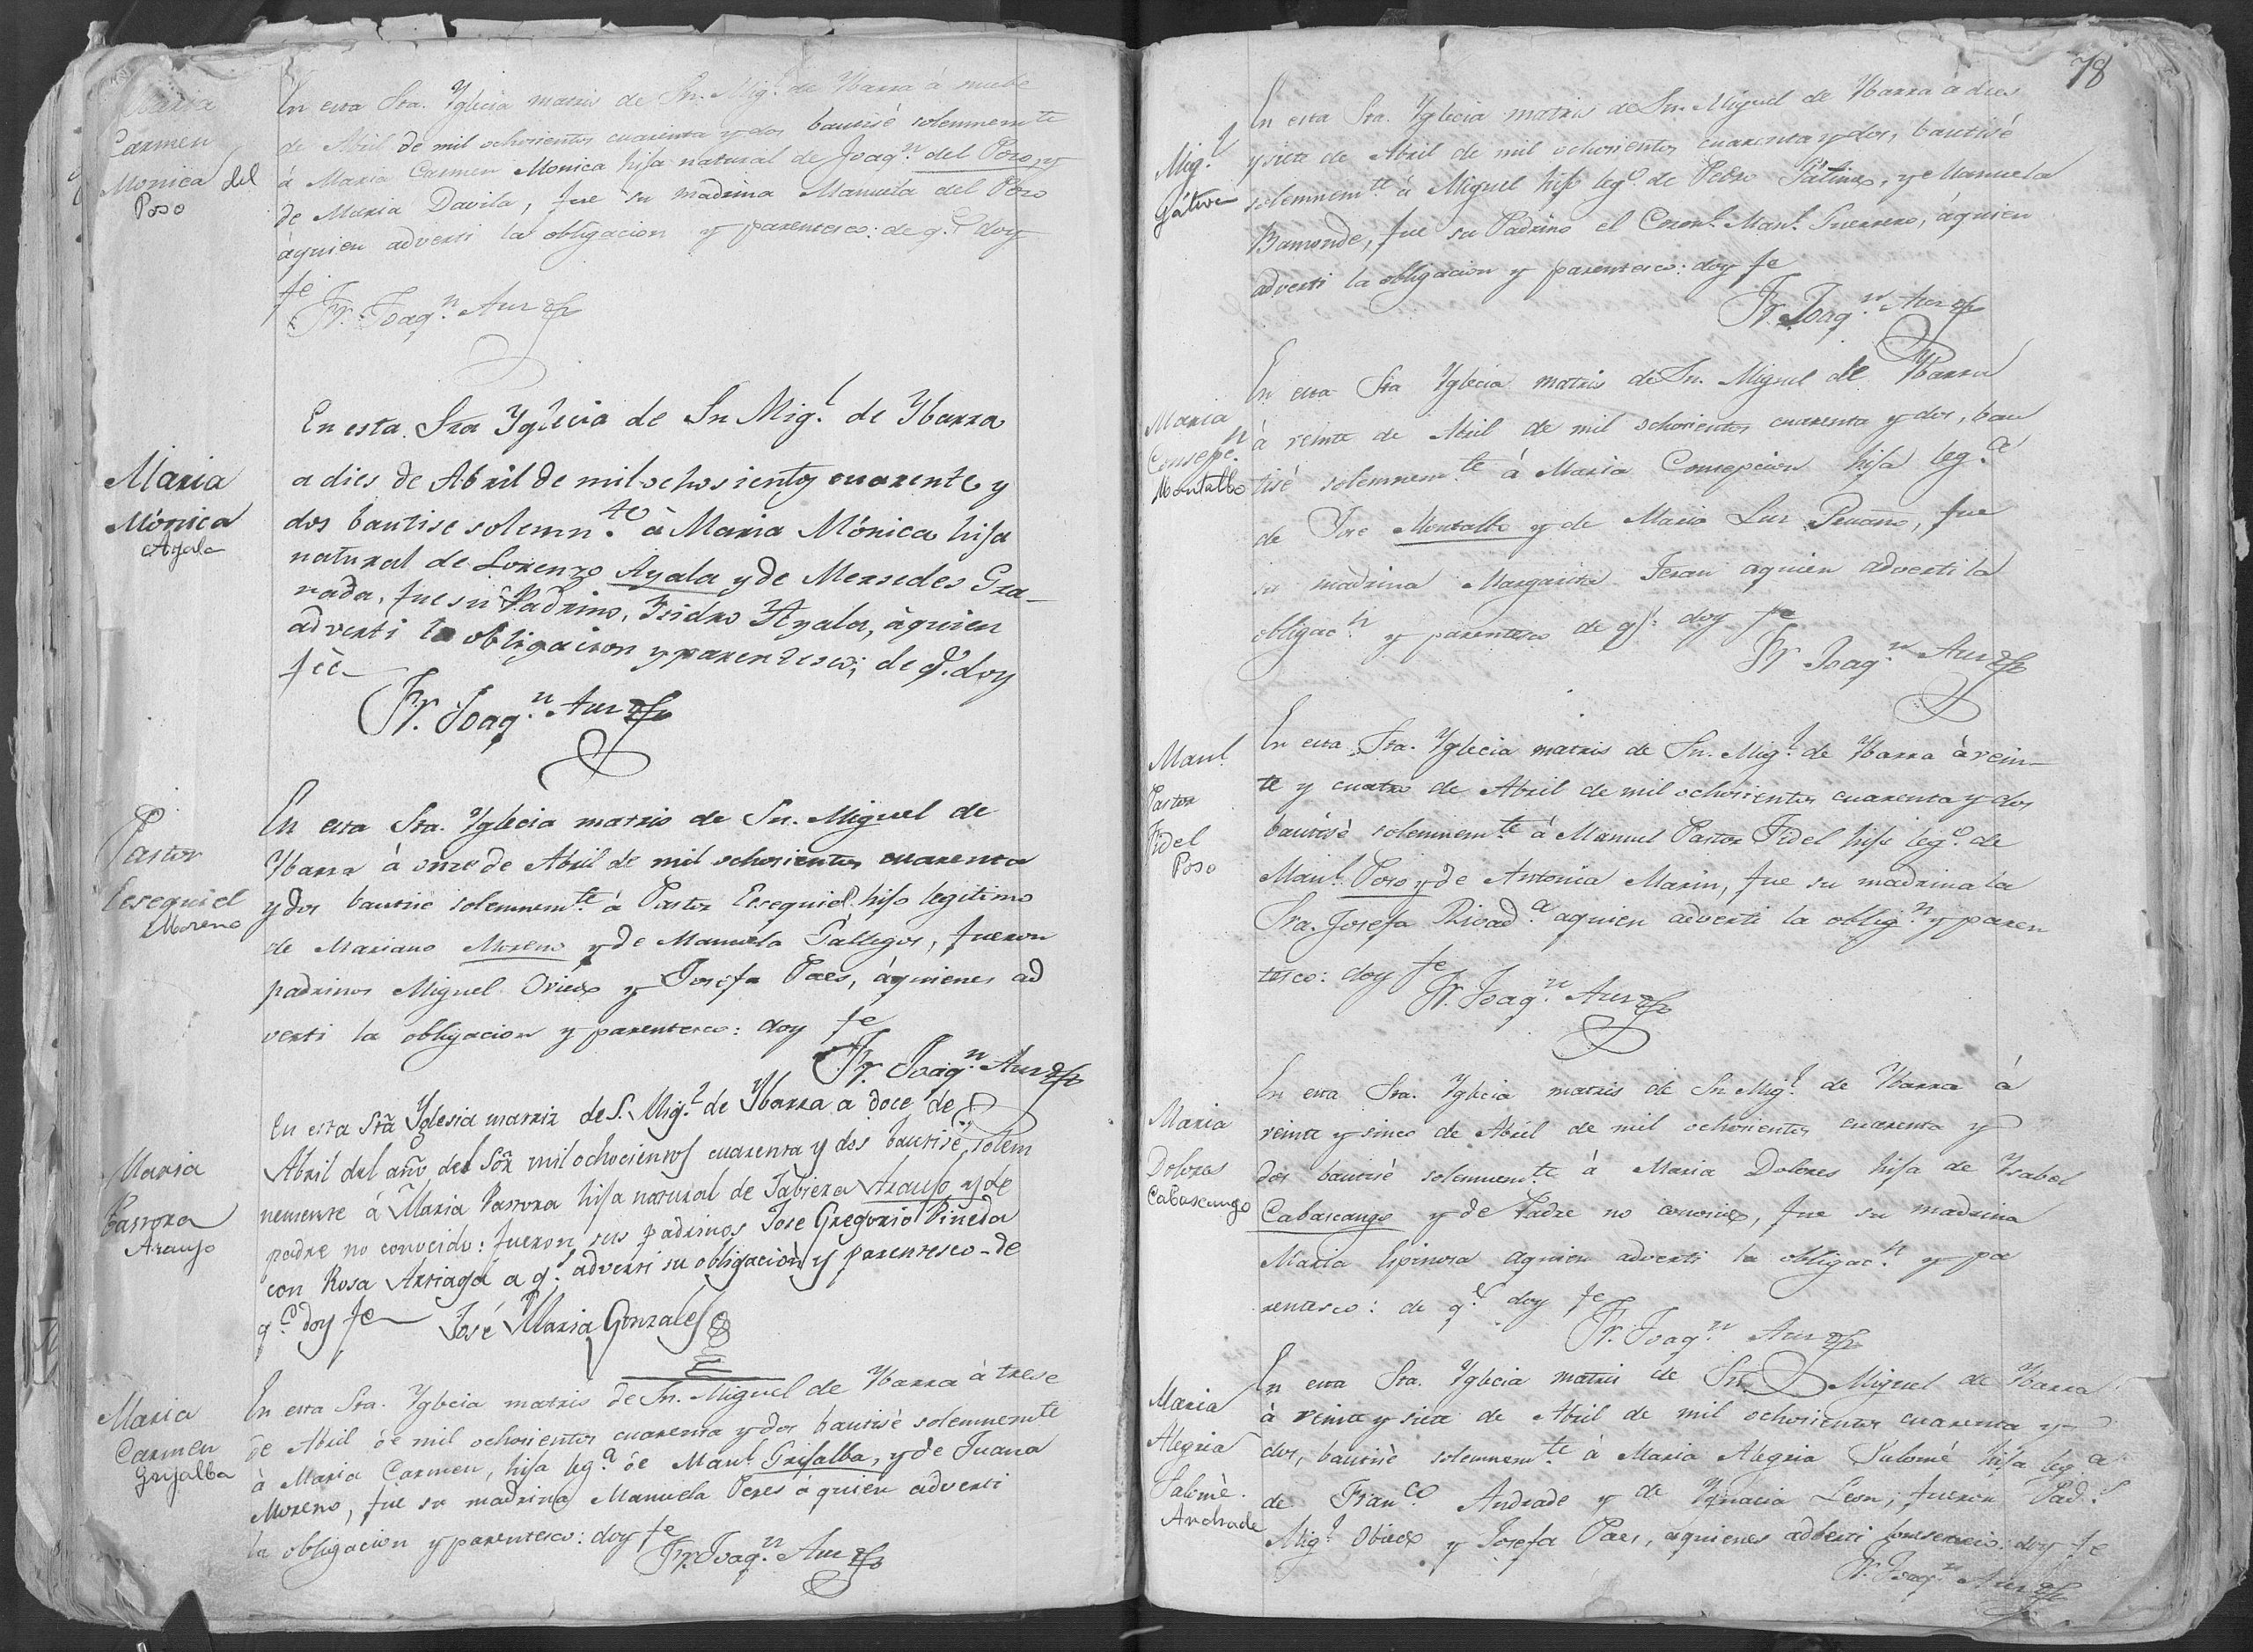 Maria
Carmen
Monica del
Poso
En esta Sta. Yglecia matris de Sn. Mig.l de Ybarra à nuebe
de Abril de mil ochosientos cuarenta y dos bautisè solemnemte
à Maria Carmen Monica hija natural de Joaq.n del Poso, y
de Maria Davila, fue su madrina Manuela del Poso
àquien adverti la obligacion y parentesco: de q.e doy
fe
Fr. Joaq.n
Maria
Mónica
Ayala
En esta Sta Yglecia de Sn Mig.l de Ybarra
a dies de Abril de mil ochosientos cuarenta y
dos bautise solemn.te à Maria Mónica hija
natural de Lorenzo Ayala y de Mersedes Gra-
nada, fue su Padrino, Isidro Ayala, àquien
adverti la obligacion y parentesco; de q.e doy
fèe
Fr. Joaq.n
Pastor
Esequiel
Moreno
En esta Sta. Yglecia matris de Sn. Miguel de
Ybarra à onse de Abril de mil ochosientos cuarenta
y dos bautisè solemnem.te à Pastor Esequiel hijo legitimo
de Mariano Moreno y de Manuela Gallegos, fueron
padrinos Miguel y Josefa Paes, àquienes ad
verti la obligacion y parentesco: doy fe
Fr. Joaq.n
Maria
Pastora
Araujo
En esta Sta Yglesia matriz de S. Mig.l de Ybarra a doce de
Abril del año del Sor. mil ochocientos cuarenta y dos bautisé solem
nemente á Maria Pastora hija natural de Jabiera Araujo y de
padre no conocido: fueron sus padrinos Jose Gregorio Pineda
con Rosa Arriaga a q.s adverti su obligación y parentesco - de
q.e doy fe José Maria Gonzales
Maria
Carmen
Grijalba
En esta Sta. Yglecia matris de Sn. Miguel de Ybarra à trese
de Abril de mil ochosientos cuarenta y dos bautisè solemnemte
à Maria Carmen, hija leg.a de Man.l Grijalba, y de Juana
Moreno, fue su madrina Manuela Peres á quien adverti
la obligacion y parentesco: doy fe
Fr. Joaq.n
78
Mig.l
En esta Sta. Yglecia matris de Sn. Miguel de Ybarra à dies
y siete de Abril de mil ochosientos cuarenta y dos, bautisé
solemnem.te à Miguel hijo leg.o de Pedro y Manuela
Bamonde, fue su Padrino el Coron.l Man.l Guerrero, àquien
adverti la obligacion y parentesco: doy fe
Fr. Joaq.n
Maria
Consepc.n
Montalbo
En esta Sta Yglecia matris de Sn. Miguel de Ybarra
à veinte de Abril de mil ochosientos cuarenta y dos, bau
tisé solemnem.te à Maria Consepcion hija leg.a
de Jose Montalbo y de Maria Lus fue
su madrina Margarita Teran aquien adverti la
obligac.n y parentesco de q.e doy fe
Fr Joaq.n
Manl.
Pastor
Fidel
Poso
En esta Sta. Yglecia matris de Sn. Mig.l de Ybarra à vein-
te y cuatro de Abril de mil ochosientos cuarenta y dos
bautisè solemnem.te à Manuel Pastor Fidel hijo leg.o de
Man.l Poso y de Antonia Marin, fue su madrina la
Sra. Josefa Rivad.a aquien adverti la oblig.n y paren
tesco: doy fe
Fr. Joaq.n
Maria
Dolores
Cabascango
En esta Sta. Yglecia matris de Sn Mig.l de Ybarra à
veinte y sinco de Abril de mil ochosientos cuarenta y
dos bautisè solemnem.te à Maria Dolores hija de Ysabel
Cabascango y de Padre no conosido, fue su madrina
Maria Espinosa aquien adverti la obligac.n y pa
rentesco: de q.e doy fe
Fr. Joaq.n
Maria
Alegria
Salomè
Andrade
En esta Sta. Yglecia matris de Sn. Miguel de Ybarra
à veinte y siete de Abril de mil ochosientos cuarenta y
dos, bautisè solemnem.te à Maria Alegria Salomé hija leg.a
de Fran.co Andrade y de Ygnacia Leon; fueron Pad.s
Mig.l y Josefa Paes, aquienes adberti doy fe
Fr. Joaq.n